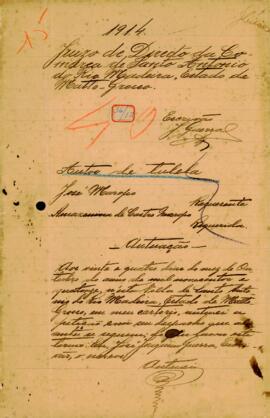 1914.
Juizo de Direito da Co
marca de Santo Antonio
do Rio Madeira, Estado de
Matto-Grosso.
Escrivão
J. Guerra
Autos de tutela
José Maropo
Requerente
Amazonina de Castro Maropo
Requerida
Autuação
Aos vinte e quatro dias do mez de Ou
tubro do anno de mil novecentos e
quatorze, n'esta Villa de Santo Anto
nio do Rio Madeira, Estado de Matto
Grosso, em meu cartorio, autuei a
petição com seu despacho que
termo. Eu, José Guerra, Escri
vão, o escrevi
Autuei